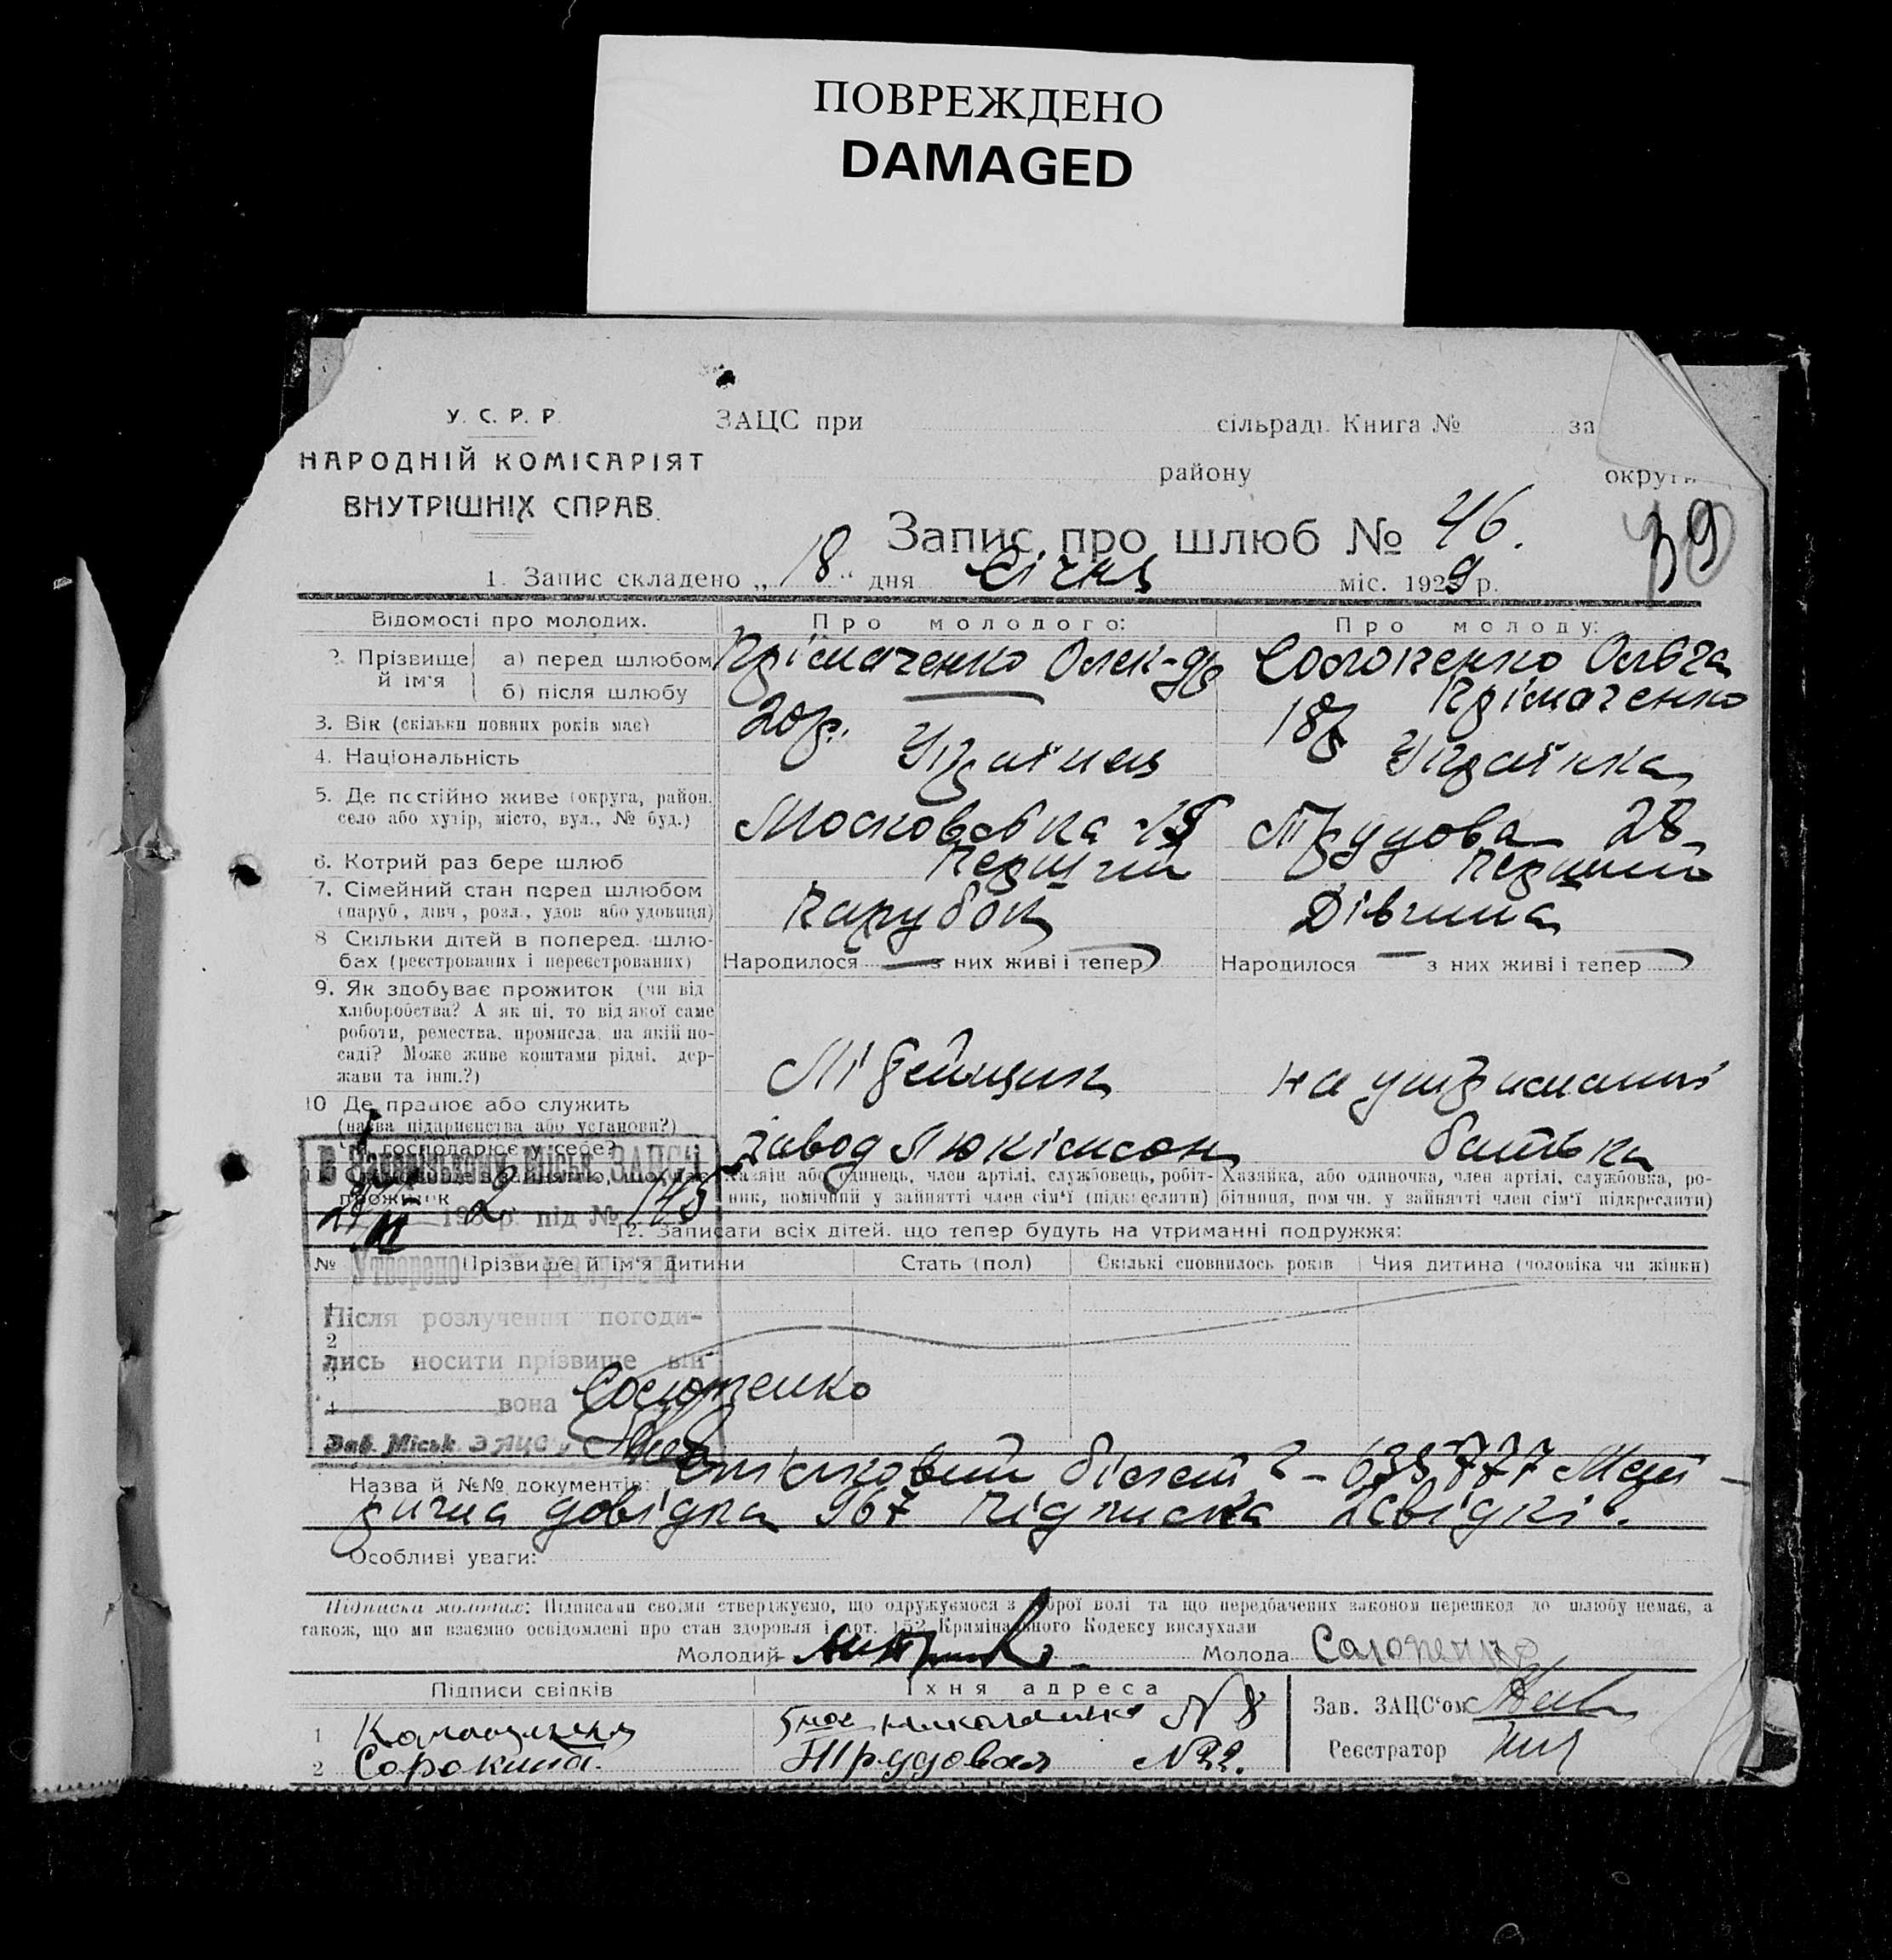 ПОВРЕЖДЕНО
DAMAGED
У. С. Р. Р.
НАРОДНІЙ КОМІСАРІЯТ
ВНУТРІШНІХ СПРАВ.
ЗАЦС при сільраді. Книга № за
району округи
Запис про шлюб № 46.
39
1. Запис складено „18“ дня Січня міс. 1929 р.
Відомості про молодих. Про молодого: Про молоду:
2. Прізвище й ім'я
а) перед шлюбом Крімаченко Олек-др
б) після шлюбу Крімаченко
Ольга
3. Вік (скільки повних років має) 20 р. 18 р
4. Національність Українец Українка
5. Де постійно живе (округа, район,
село або хутір, місто, вул., № буд.) Московська Трудова 28
6. Котрий раз бере шлюб Перший Перший
7. Сімейний стан перед шлюбом
(паруб., дівч., розл., удов. або удовиця) Парубок Дівчина
8 Скільки дітей в поперед. шлю-
бах (реєстрованих і переєстрованих) Народилося — з них живі і тепер Народилося — з них живі і тепер
9. Як здобуває прожиток (чи від
хліборобства? А як ні, то від якої саме
роботи, ремества, промисла, на якій по-
саді? Може живе коштами рідні, дер-
жави та інш.?) Мідейщик на утриманні
10 Де працює або служить
(назва підприємства або установи?)
Чи господарює у себе? завод батька
прожиток
Хазяїн або одинець, член артілі, службовець, робіт-
ник, помічний у зайнятті член сім'ї (підкреслити)
Хазяйка, або одиночка, член артілі, службовка, ро-
бітниця, пом чн. у зайнятті член сім'ї підкреслити)
В Запорізькому Міськ. ЗАЦСі
193 2 р. під № 145
Утворено розлучення
Після розлучення погоди-
лись носити прізвище він
вона
Зав. Міськ. ЗАЦС'у
12. Записати всіх дітей, що тепер будуть на утриманні подружжя:
№ Прізвище й ім'я дитини Стать (пол) Скількі сповнилось років Чия дитина (чоловіка чи жінки)
1
2
3
4
Назва й №№ документів: білет 635777 Меди-
чна довідка 967 Підписка 2 свідків.
Особливі уваги:
Підписка молодих: Підписами своїми стверджуємо, що одружуємося з доброї волі та що передбачених законом перешкод до шлюбу немає, а
також, що ми взаємно освідомлені про стан здоровля і арт. 152 Кримінального Кодексу вислухали
Молодий Молода
Підписи свідків Їхня адреса
1 № 8
2 Сорокина. Трудовая № 22.
Зав. ЗАЦС'ом
Реєстратор